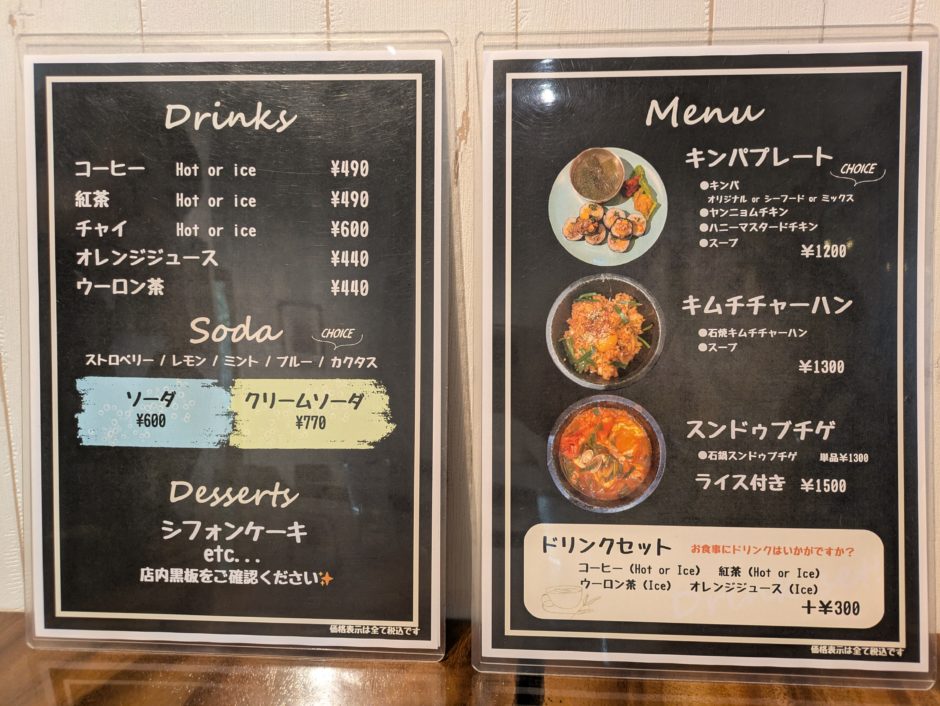 Drinks
コーヒー Hot or ice ¥490
紅茶 Hot or ice ¥490
チャイ Hot or ice ¥600
オレンジジュース ¥440
ウーロン茶 ¥440
Soda CHOICE
ストロベリー / レモン / ミント / ブルー / カクタス
ソーダ クリームソーダ
¥600 ¥770
Desserts
シフォンケーキ
etc...
店内黒板をご確認ください✨
価格表示は全て税込です
Menu
キンパプレート CHOICE
●キンパ
オリジナル or シーフード or ミックス
●ヤンニョムチキン
●ハニーマスタードチキン
●スープ
¥1200
キムチチャーハン
●石焼キムチチャーハン
●スープ
¥1300
スンドゥブチゲ
●石鍋スンドゥブチゲ 単品¥1300
ライス付き ¥1500
ドリンクセット お食事にドリンクはいかがですか？
コーヒー (Hot or Ice) 紅茶 (Hot or Ice)
ウーロン茶 (Ice) オレンジジュース (Ice)
＋¥300
価格表示は全て税込です